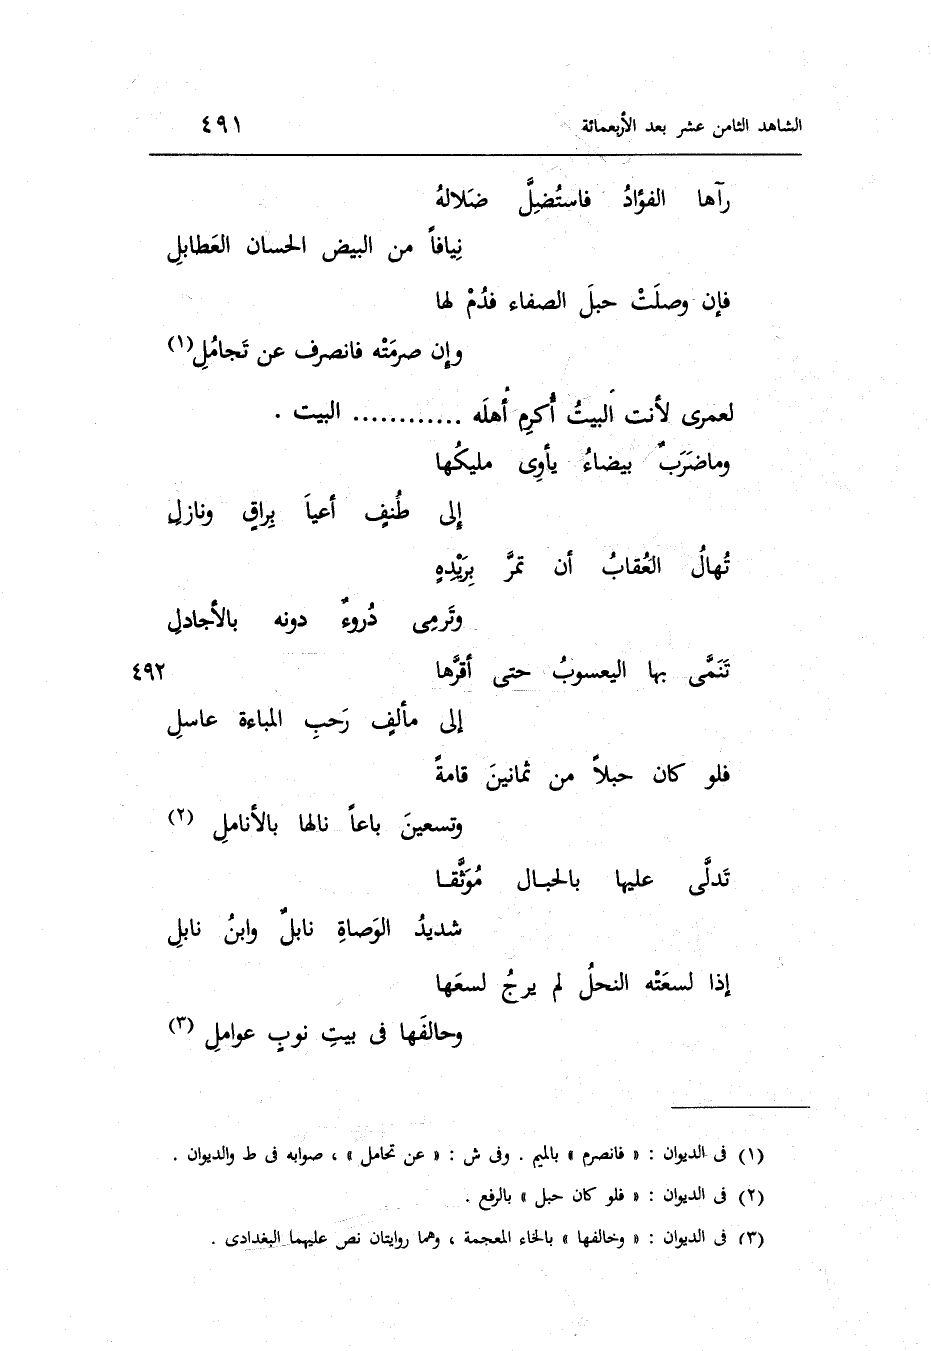 الشاهد الثامن عشر بعد الأربعمائة ٤٩١
رآها الفؤادُ فاستُضِلَّ ضَلالهُ
نِيافاً من البيض الحسان العَطابلِ
فإن وصلَتْ حبلَ الصفاء فدُمْ لها
وإن صرمَتْه فانصرف عن تَجامُلِ(١)
لعمرى لأنت البيتُ أُكرِم أُهلَه ............ البيت .
وماضَرَبٌ بيضاءُ يأوِى مليكُها
إلى طُنفٍ أعياَ بِراقٍ ونازلِ
تُهالُ العُقابُ أن تمرَّ بِرَيْدِهِ
وتَرمِى دُروءٌ دونه بالأجادلِ
تَنَمَّى بها اليعسوبُ حتى أقرَّها ٤٩٢
إلى مألفٍ رَحبِ المباءة عاسلِ
فلو كان حبلاً من ثمانينَ قامةً
وتسعينَ باعاً نالها بالأناملِ (٢)
تَدلَّى عليها بالحبال مُوَثَّقا
شديدُ الوَصاةِ نابلٌ وابنُ نابلِ
إذا لسعَتْه النحلُ لم يرجُ لسعَها
وحالفَها فى بيتِ نوبٍ عواملِ (٣)
(١) فى الديوان : « فانصرم » بالميم . وفى ش : « عن تحامل » ، صوابه فى ط والديوان .
(٢) فى الديوان : « فلو كان حبل » بالرفع .
(٣) فى الديوان : « وخالفها » بالخاء المعجمة ، وهما روايتان نص عليهما البغدادى .